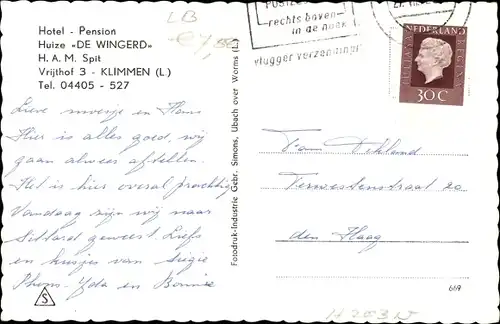 LB
€7,50
Hotel - Pension
Huize «DE WINGERD»
H. A. M. Spit
Vrijthof 3 - KLIMMEN (L.)
Tel. 04405 - 527
Lieve en Hans
Hier is alles goed, wij
gaan alweer aftellen.
Het is hier overal prachtig
Vandaag zijn wij naar
Sittard geweest. Liefs
en kusjes van
Ida en Bonnie
S
Fotodruk-Industrie Gebr. Simons, Ubach over Worms (L.)
rechts boven
in de hoek
vlugger verzending
NEDERLAND
JULIANA REGINA
30 C
Fam
20
den Haag
669